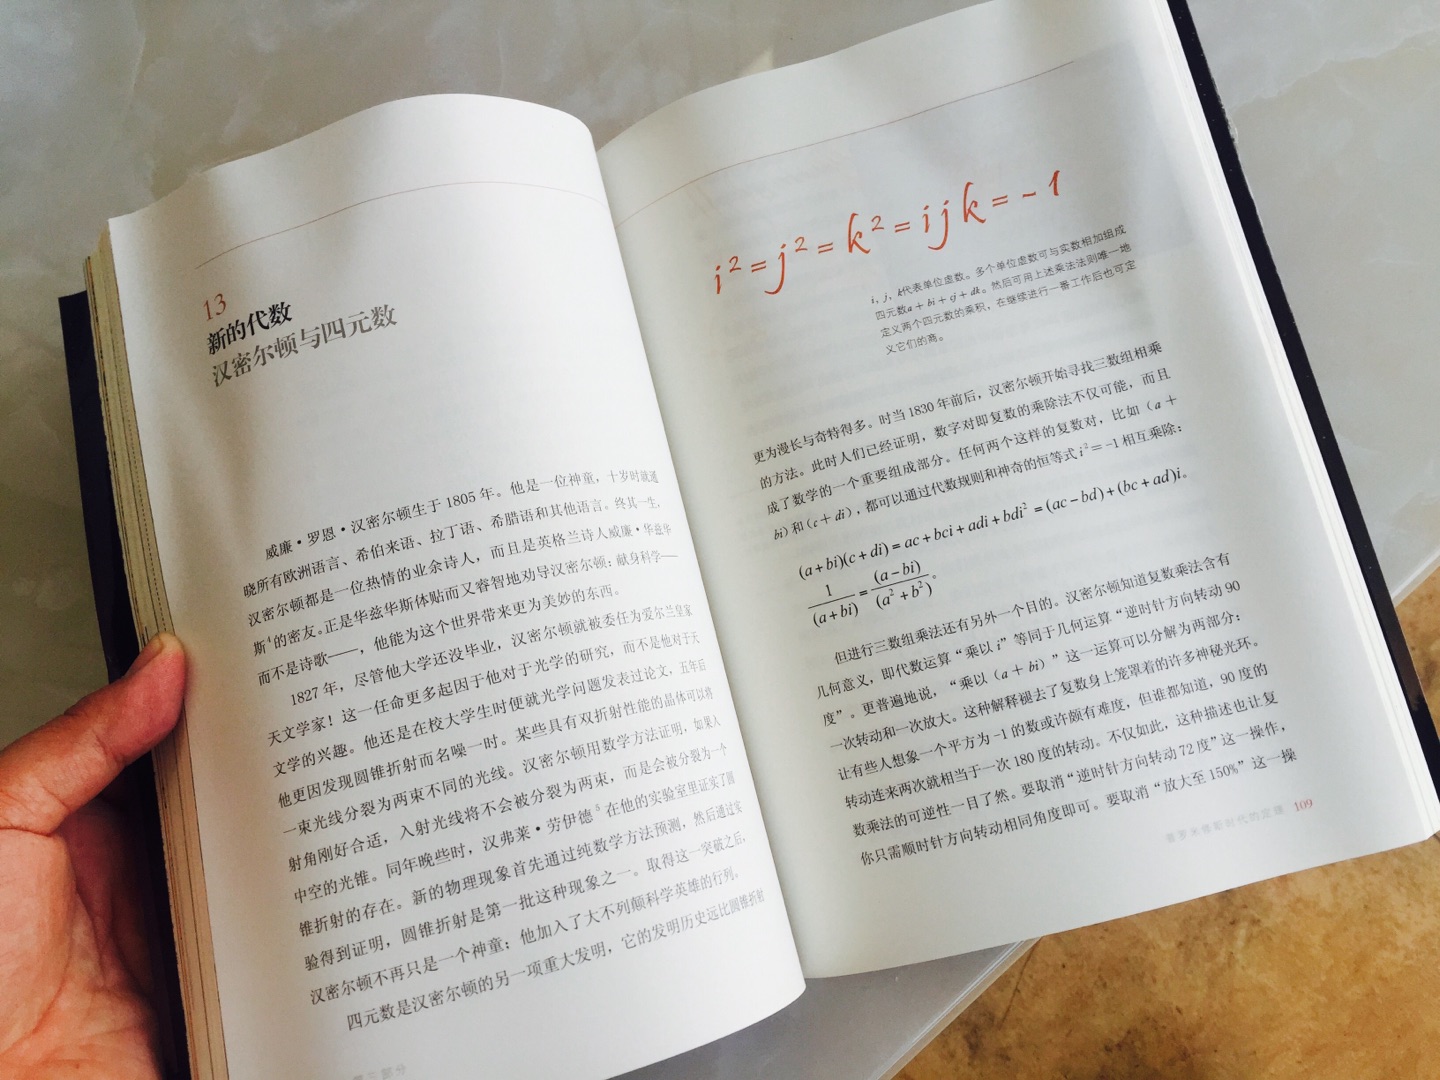 13
新的代数
汉密尔顿与四元数
威廉·罗恩·汉密尔顿生于1805年。他是一位神童，十岁时就通
晓所有欧洲语言、希伯来语、拉丁语、希腊语和其他语言。终其一生，
汉密尔顿都是一位热情的业余诗人，而且是英格兰诗人威廉·华兹华
斯⁴的密友。正是华兹华斯体贴而又睿智地劝导汉密尔顿：献身科学——
而不是诗歌——，他能为这个世界带来更为美妙的东西。
1827年，尽管他大学还没毕业，汉密尔顿就被委任为爱尔兰皇家
天文学家！这一任命更多起因于他对于光学的研究，而不是他对于天
文学的兴趣。他还是在校大学生时便就光学问题发表过论文，五年后
他更因发现圆锥折射而名噪一时。某些具有双折射性能的晶体可以将
一束光线分裂为两束不同的光线。汉密尔顿用数学方法证明，如果入
射角刚好合适，入射光线将不会被分裂为两束，而是会被分裂为一个
中空的光锥。同年晚些时，汉弗莱·劳伊德⁵在他的实验室里证实了圆
锥折射的存在。新的物理现象首先通过纯数学方法预测，然后通过实
验得到证明，圆锥折射是第一批这种现象之一。取得这一突破之后，
汉密尔顿不再只是一个神童：他加入了大不列颠科学英雄的行列。
四元数是汉密尔顿的另一项重大发明，它的发明历史远比圆锥折射
三部分
i²=j²=k²=ijk=-1
i，j，k代表单位虚数。多个单位虚数可与实数相加组成
四元数a + bi + cj + dk。然后可用上述乘法法则唯一地
定义两个四元数的乘积，在继续进行一番工作后也可定
义它们的商。
更为漫长与奇特得多。时当1830年前后，汉密尔顿开始寻找三数组相乘
的方法。此时人们已经证明，数字对即复数的乘除法不仅可能，而且
成了数学的一个重要组成部分。任何两个这样的复数对，比如（a +
bi）和（c + di），都可以通过代数规则和神奇的恒等式 i²=-1 相互乘除：
(a+bi)(c+di)=ac+bci+adi+bdi²=(ac-bd)+(bc+ad)i。
1/(a+bi)=(a-bi)/(a²+b²)。
但进行三数组乘法还有另外一个目的。汉密尔顿知道复数乘法含有
几何意义，即代数运算“乘以 i”等同于几何运算“逆时针方向转动90
度”。更普遍地说，“乘以（a + bi）”这一运算可以分解为两部分：
一次转动和一次放大。这种解释褪去了复数身上笼罩着的许多神秘光环。
让有些人想象一个平方为-1的数或许颇有难度，但谁都知道，90度的
转动连来两次就相当于一次180度的转动。不仅如此，这种描述也让复
数乘法的可逆性一目了然。要取消“逆时针方向转动72度”这一操作，
你只需顺时针方向转动相同角度即可。要取消“放大至150%”这一操
普罗米修斯时代的定理 109